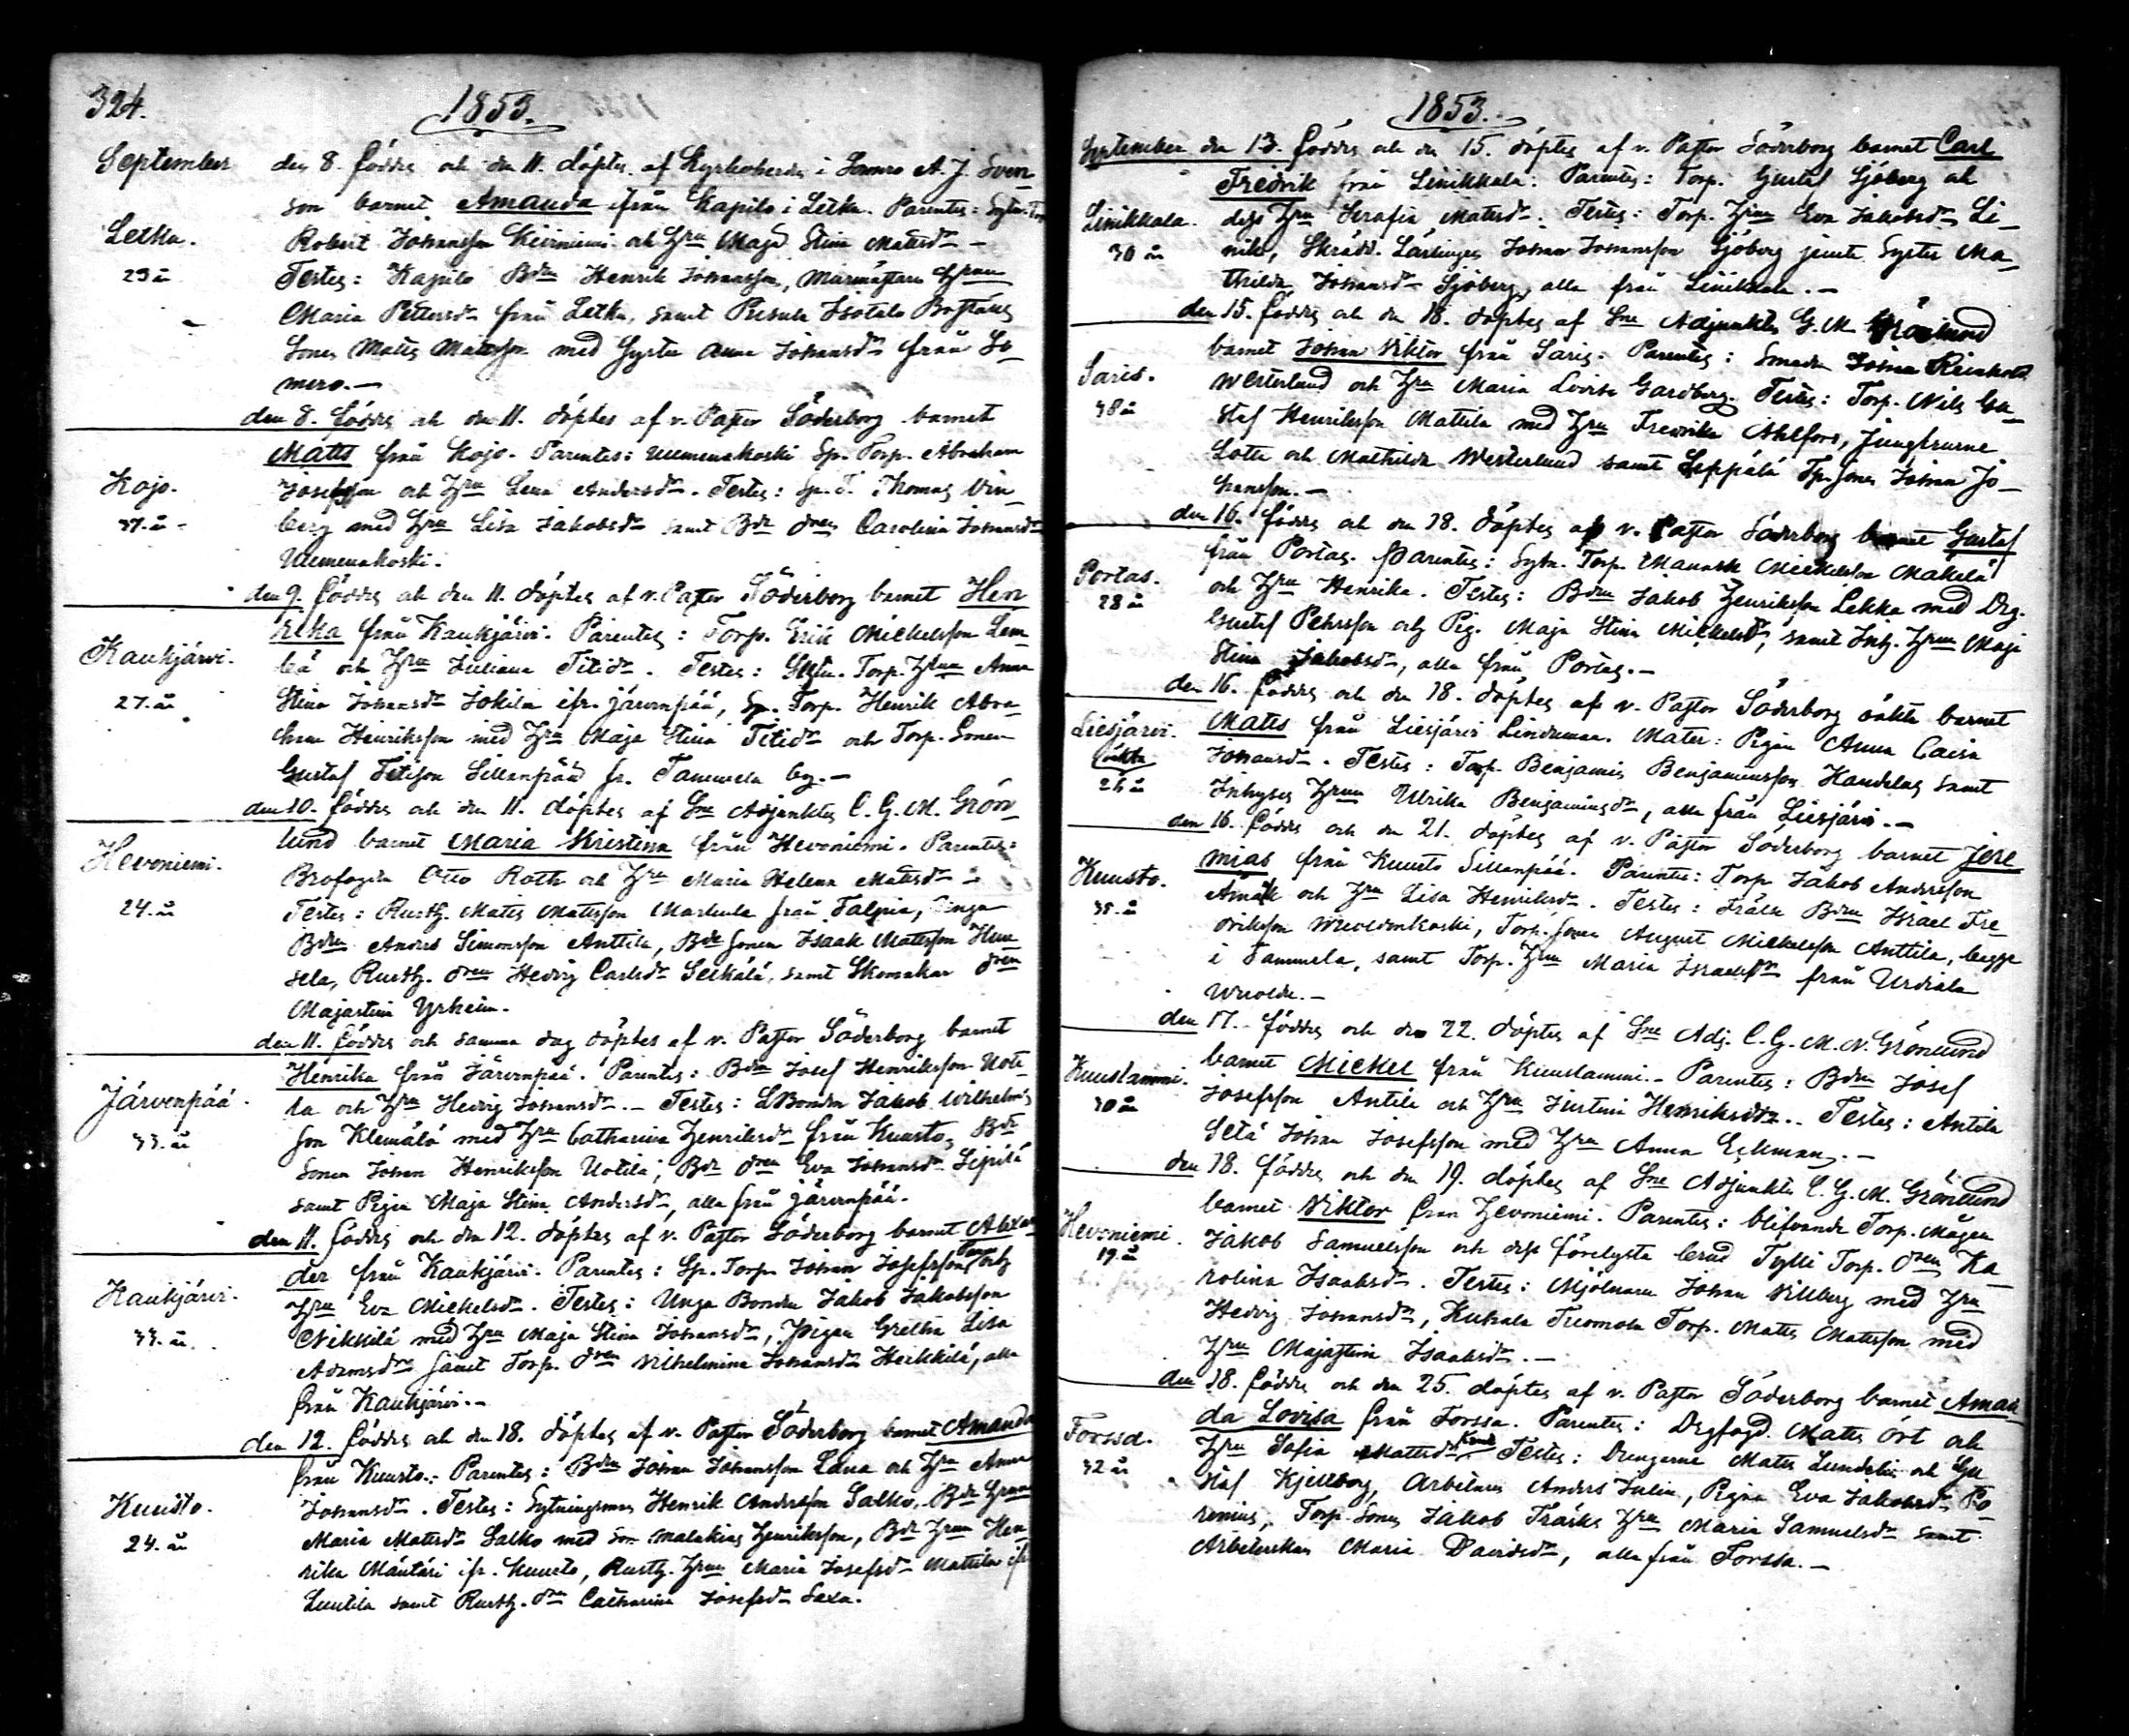 324.
1853.
September den 8. föddes och den 11. döptes af Kyrkoherden i Somero A. J. Sven-
son barnet Amanda ifrån Kapilo i Letku. Parentes: Sytn. Torp
Letku. Robert Johansson Kiviniemi och Hru Maja Stina Matsdr -
29 år Testes: Kapilo Bdn Henrik Johansson, Hrun
Maria Pettersdr från Letku, samt Isotalo
Sonen Matts Mattsson med Syster Anna Johansdr från So-
mero.-
den 8. föddes och den 11. döptes af v. Pastor Söderborg barnet
Matts från Kojo. Parentes: Uumenakoski Sp. Torp. Abraham
Kojo. Josefsson och Hru Lena Andersdr. Testes: Sp. T. Thomas Vin-
37. år - berg med Hru Lisa Jakobsdr samt Bde dren Carolina Johansdr
Uumenakoski.
den 9. föddes och den 11. döptes af v. Pastor Söderborg barnet Hen
rika från Kaukjärvi. Parentes: Torp. Erik Mickelsson Lem-
Kaukjärvi. lä och Hru Juliana Titidr. Testes: Torp. Hrun Anna
27. år Stina Johansdr Jokila ifr. järvenpää, Sp. Torp. Henrik Abra-
ham Henriksson med Hru Maja Stina Titidr och Torp. Sonen
Gustaf Titison Sillanpää fr. Tammela by.-
den 10. föddes och den 11. döptes af Sne Adjunkten C. G. M. Grön-
lund barnet Maria Kristina från Hevoniemi. Parentes:
Hevoniemi. Brofogden Otto Roth och Hru Maria Helena Mattsdr -
24. år Testes: Rusth. Matts Mattsson Markula från Talpia, Unga
Bdn Anders Simonsson Anttila, Bde Sonen Isaak Mattsson Hun-
sela, Rusth. dren Hedvig Carlsdr Seikälä, samt Skomakar dren
Majastina Yrheim.
den 11. föddes och samma dag döptes af v. Pastor Söderborg barnet
Henrika från Järvenpää. Parentes: Bdn Josef Henriksson Uoti-
Järvenpää. la och Hru Hedvig Johansdr.- Testes: LBonden Jakob Wilhelms
33. år son Klemälä med Hru Catharina Henriksdr från Kuusto, Bde
Sonen Johan Henriksson Uotila, Bde dren Eva Johansdr
samt Pigan Maja Stina Andersdr, alla från järvenpää.
den 11. föddes och den 12. döptes af v. Pastor Söderborg barnet Alexan
der från Kaukjärvi. Parentes: Sp. Torp. Johan Josefsson och
Kaukjärvi. Hru Eva Mickelsdr. Testes: Unga Bonden Jakob Jakobsson
33. år. Nikkilä med Hru Maja Stina Johansdr, Pigan Gretha Lisa
Adamsdr samt Torp. dren Vilhelmina Johansdr Heikkilä, alla
från Kaukjärvi.-
den 12. föddes och den 18. döptes af v. Pastor Söderborg barnet Amanda
från Kuusto.- Parentes: Bdn Johan Johansson Lana och Hru Anna
Kuusto. Johansdr. Testes: Sytningsman Henrik Andersson Salko, Bde Hrun
24. år Maria Matsdr Salko med Son Malakias Henriksson, Bde Hrun Hen
rika Mäntäri ifr. Kuusto, Rusth. Hrun Maria Josefsdr Mattila ifr
Luutila samt Rusth. drn Catharina Josefsdr Saxa.
1853.
September den 13. föddes och den 15. döptes af v. Pastor Söderborg barnet Carl
Fredrik från Linikkala. Parentes: Torp. Gustaf Sjöberg och
Linikkala. dess Hru Serafia Matsdr. Testes: Torp. Hrun Eva Jakobsdr Li-
30 år nik, Skrädd. Lärlingen Johan Johansson Sjöberg jemte Syster Ma-
thilda Johansdr Sjöberg, alla från Linikkala.-
den 15. föddes och den 18. döptes af Sne Adjunkten G. M. Grönlund
barnet Johan Viktor från Saris. Parentes: Smeden Johan Reinhold
Saris. Westerlund och Hru Maria Lovisa Gardberg. Testes: Torp. Nils Gu-
38 år staf Henriksson Mattila med Hru Fredrika Ahlfors, Jungfrurne
Lotta och Mathilda Westerlund samt Leppälä Tp. Sonen Johan Jo-
hansson.-
den 16. föddes och den 18. döptes af v. Pastor Söderborg barnet Gustaf
från Portas. Parentes: Sytn. Torp. Manasse Mickelsson Mäkelä
Portas. och Hru Henrika. Testes: Bdn Jakob Henriksson Lekka med Drg.
28 år Gustaf Pehrsson och Pig. Maja Stina Mickelsdr, samt Inh. Hrun Maja
Stina Jakobsdr, alla från Portas.-
den 16. föddes och den 18. döptes af v. Pastor Söderborg oäkta barnet
Liesjärvi. Matts från Liesjärvi Lindeman. Mater: Pigan Anna Caisa
oäkta Johansdr. Testes: Torp. Benjamin Benjaminsson Handelas samt
26 år Inhyses Hrun Ulrika Benjaminsdr, alla från Liesjärvi.-
den 16. föddes och den 21. döptes af v. Pastor Söderborg barnet Jere
mias från Kuusto Sillanpää. Parentes: Torp. Jakob Andersson
Kuusto. och Hru Lisa Henriksdr. Testes: Frälse Bdn Israel Fre
35. år driksson Wuoldenkoski, Torp. Sonen August Mickelsson Anttila, begge
i Tammela, samt Torp. Hrun Maria Israelsdr från Urdiala
Wuolde.-
den 17. föddes och den 22. döptes af Sne Adj. C. G. M. N. Grönlund
barnet Mickel från Kuuslammi.- Parentes: Bdn Josef
Kuuslammi. Josefsson Antila och Hru Justina Henriksdr.. Testes: Antila
30 år Setä Johan Josefsson med Hru Anna Eckman.-
den 18. föddes och den 19. döptes af Sne Adjunkten C. G. M. Grönlund
barnet Viktor från Hevoniemi. Parentes: blifvande Torp. Mågen
Hevoniemi. Jakob Samuelsson och dess förelysta brud Tylli Torp. dren Ka-
19. år rolina Isaaksdr. Testes: Mjölnaren Johan Villberg med Hru
Hedvig Johansdr, Kuhala Torp. Matts Mattsson med
Hru Majastina Isaaksdr.-
den 18. föddes och den 25. döptes af v. Pastor Söderborg barnet Aman
da Lovisa från Forssa. Parentes: Drgfogd. Matts Ört och
Forssa. Hru Sofia Mattsdr. Testes: Drengarne Matts Lundelin och Gu
32 år staf Kjellborg, Arbetaren Anders Julin, Pigan Eva Jakobsdr Po
renius, Torp. Sonen Jakob Träsks Hru Maria Samuelsdr samt
Arbeterskan Maria Davidsdr, alla från Forssa.-